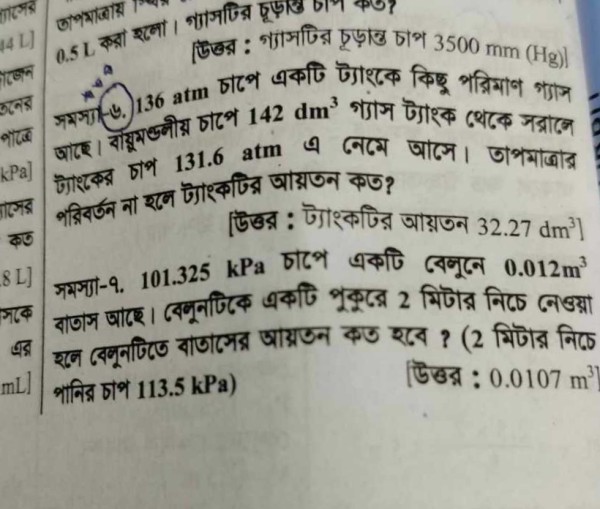 তাপমাত্রায়
0.5 L করা হলো। গ্যাসটির চূড়ান্ত চাপ কত?
[উত্তর : গ্যাসটির চূড়ান্ত চাপ 3500 mm (Hg)]
সমস্যা-৬. 136 atm চাপে একটি ট্যাংকে কিছু পরিমাণ গ্যাস
আছে। বায়ুমণ্ডলীয় চাপে 142 dm³ গ্যাস ট্যাংক থেকে সরালে
ট্যাংকের চাপ 131.6 atm এ নেমে আসে। তাপমাত্রার
পরিবর্তন না হলে ট্যাংকটির আয়তন কত?
[উত্তর : ট্যাংকটির আয়তন 32.27 dm³]
সমস্যা-৭. 101.325 kPa চাপে একটি বেলুনে 0.012m³
বাতাস আছে। বেলুনটিকে একটি পুকুরে 2 মিটার নিচে নেওয়া
হলে বেলুনটিতে বাতাসের আয়তন কত হবে ? (2 মিটার নিচে
পানির চাপ 113.5 kPa)
[উত্তর : 0.0107 m³]
44 L]
kPa]
কত
8 L]
এর
mL]